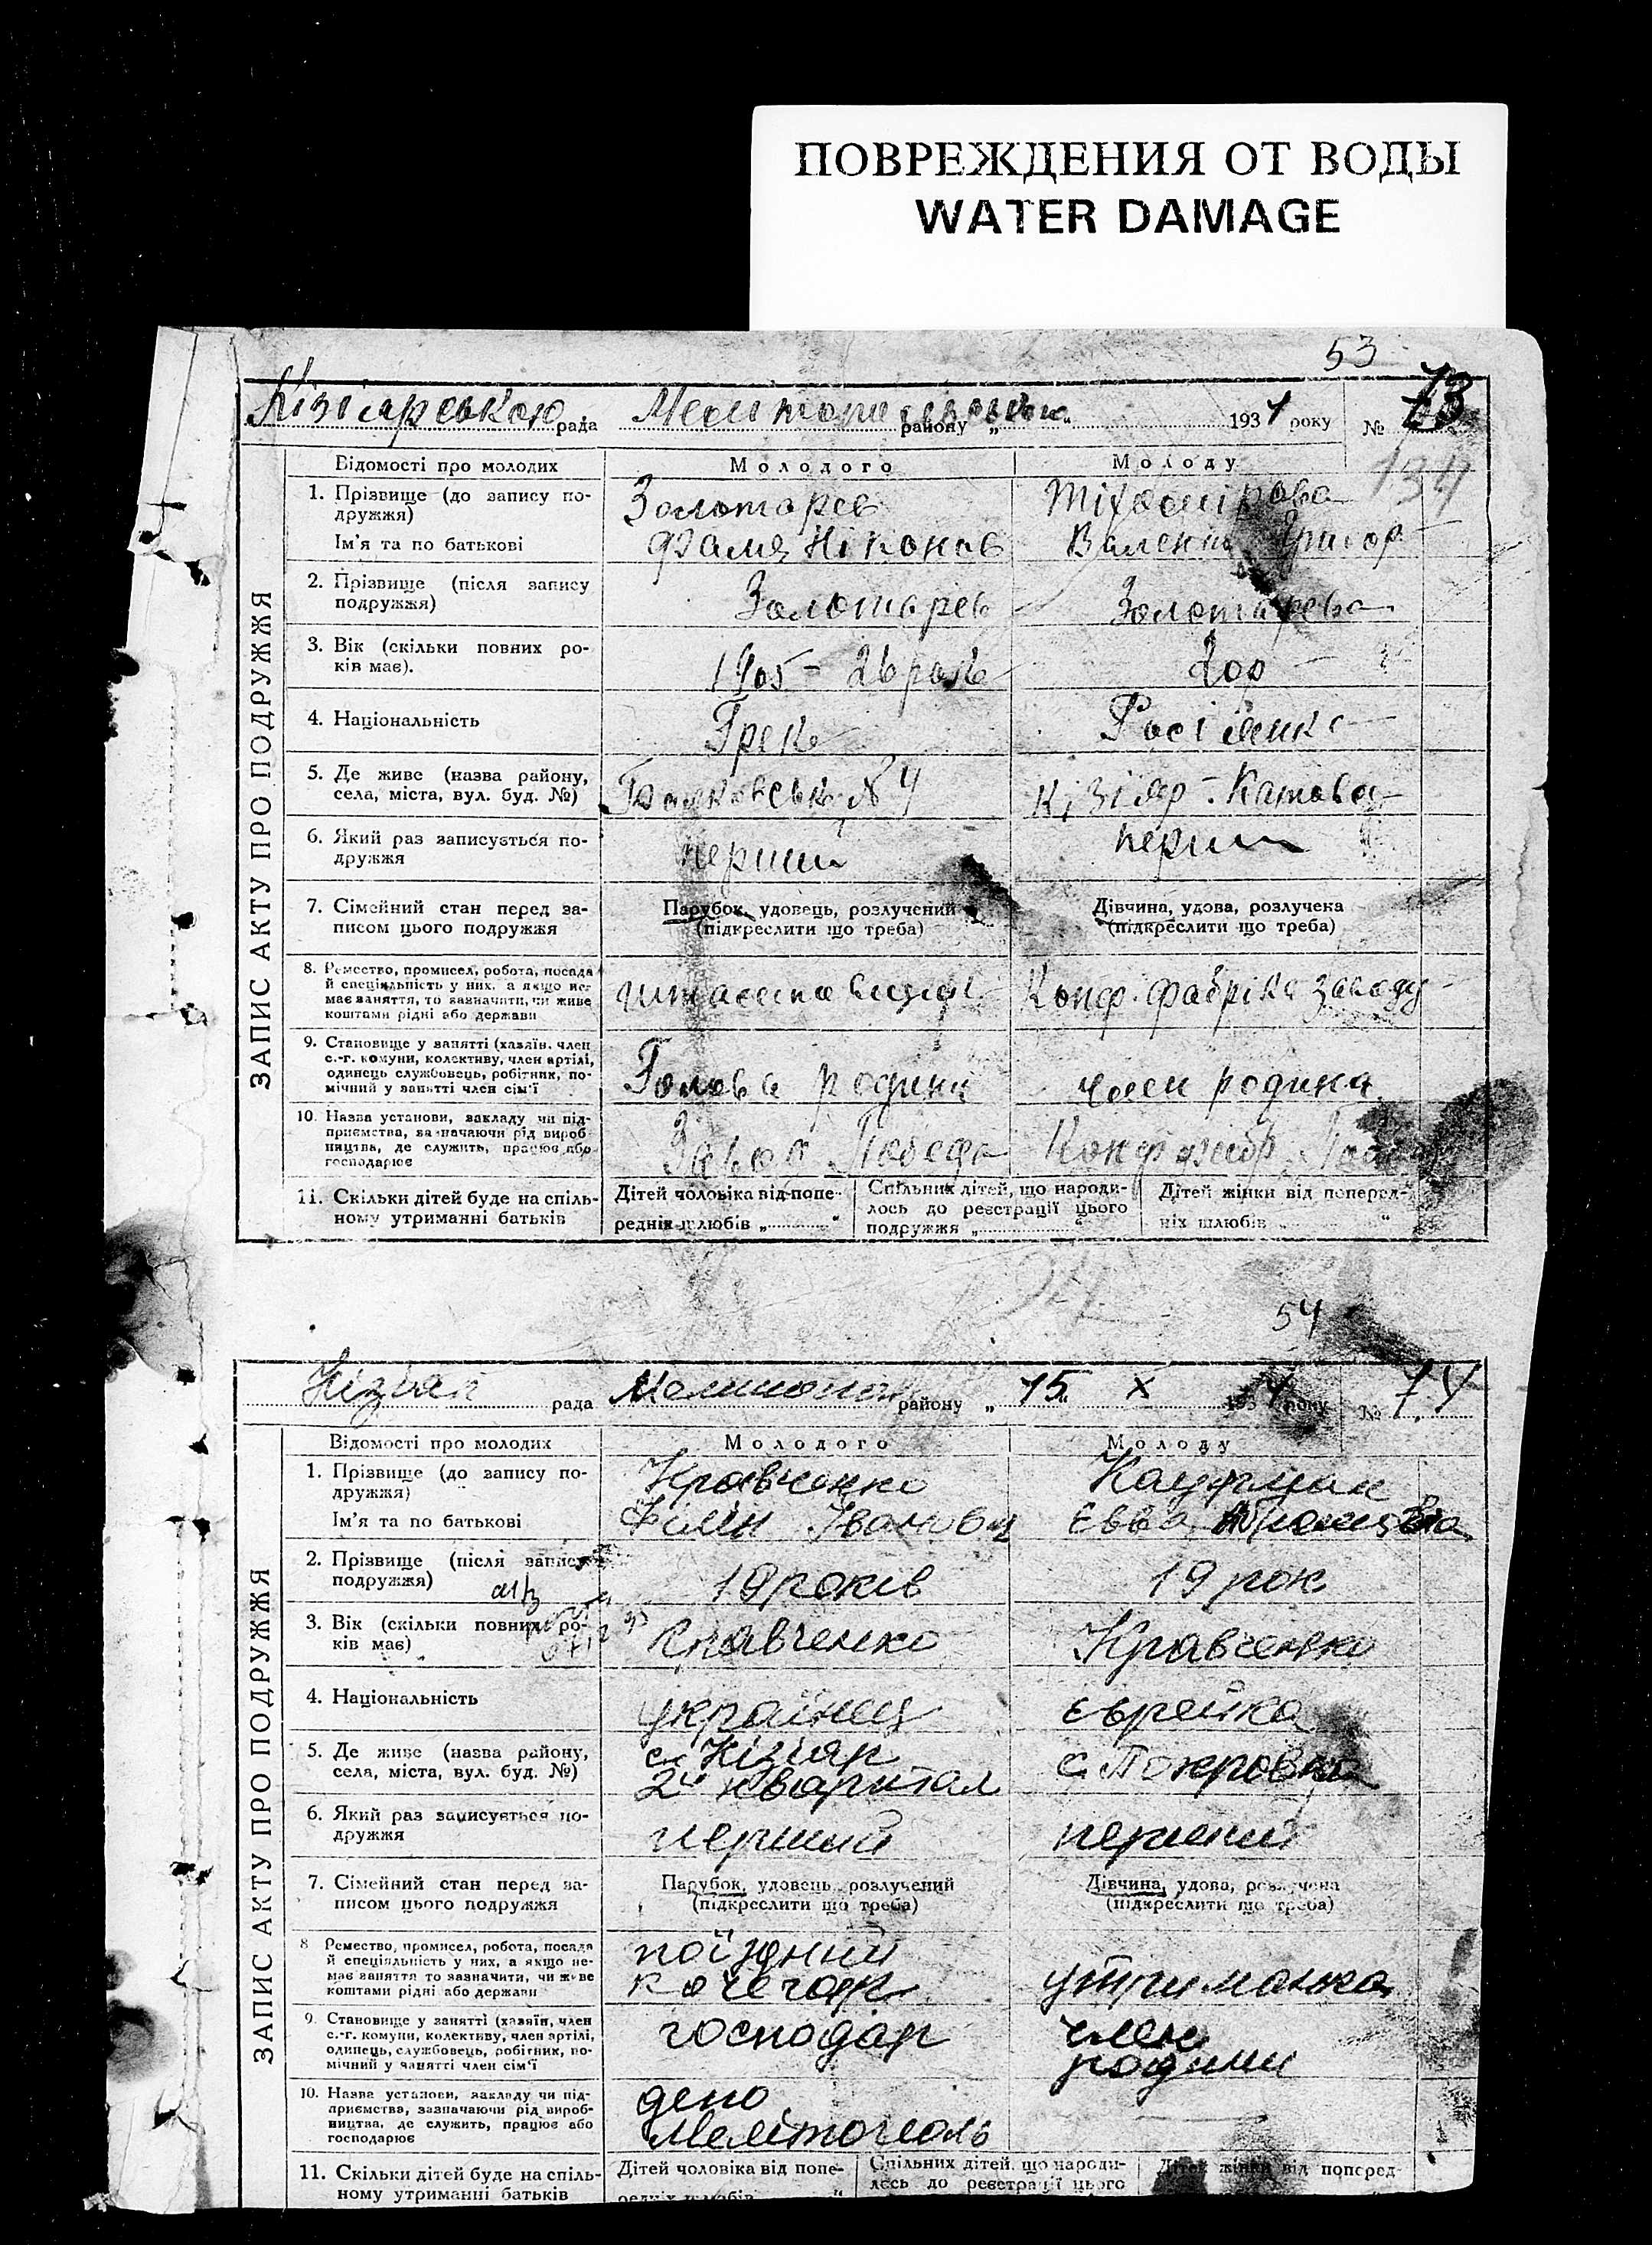 ПОВРЕЖДЕНИЯ ОТ ВОДЫ
WATER DAMAGE
53
Кізіярською рада району „ “ 1931 року № 73
134
ЗАПИС АКТУ ПРО ПОДРУЖЖЯ
Відомості про молодих Молодого Молоду
1. Прізвище (до запису по-
дружжя) Золотарев Тіхомірова
Ім'я та по батькові Ніконов Григор
2. Прізвище (після запису
подружжя) Золотарев Золотарева
3. Вік (скільки повних ро-
ків має). 1905 - 26 років 20р
4. Національність Грек Росіянка
5. Де живе (назва району,
села, міста, вул. буд. №) №4 Кізіяр
6. Який раз записується по-
дружжя перший перши
7. Сімейний стан перед за-
писом цього подружжя
Парубок, удовець, розлучений
(підкреслити що треба)
Дівчина, удова, розлучена
(підкреслити що треба)
8. Ремество, промисел, робота, посада
й спеціяльність у них, а якщо не-
має заняття, то зазначити, чи живе
коштами рідні або держави
Конф. фабріка заводу
9. Становище у занятті (хазяїн, член
с.-г. комуни, колективу, член артілі,
одинець службовець, робітник, по-
мічний у занятті член сім'ї
Голова родини член родина
10. Назва установи, закладу чи під-
приємства, зазначаючи рід вироб-
ництва, де служить, працює або
господарює
Завод Победа Конф
11. Скільки дітей буде на спіль-
ному утриманні батьків
Дітей чоловіка від попе-
редніх шлюбів „ “
Спільних дітей, що народи-
лось до реєстрації цього
подружжя „ “
Дітей жінки від поперед-
ніх шлюбів „ “
54
Кізіяр рада району „15“ X 1931 року № 74
ЗАПИС АКТУ ПРО ПОДРУЖЖЯ
Відомості про молодих Молодого Молоду
1. Прізвище (до запису по-
дружжя) Кравченко Кауфман
Ім'я та по батькові Євва
2. Прізвище (після запису
подружжя) 19 років 19 рок
3. Вік (скільки повних ро-
ків має) Кравченко Кравченко
4. Національність українец єврейка
5. Де живе (назва району,
села, міста, вул. буд. №) с. Кізіяр
24 квартал
с. Покровка
6. Який раз записується по-
дружжя перший перший
7. Сімейний стан перед за-
писом цього подружжя
Парубок, удовець, розлучений
(підкреслити що треба)
Дівчина, удова, розлучена
(підкреслити що треба)
8 Ремество, промисел, робота, посада
й спеціяльність у них, а якщо не-
має заняття то зазначити, чи живе
коштами рідні або держави
поїздний
кочегар
утриманка
9. Становище у занятті (хазяїн, член
с.-г. комуни, колективу, член артілі,
одинець, службовець, робітник, по-
мічний у занятті член сім'ї
господар
член
родини
10. Назва установи, закладу чи під-
приємства, зазначаючи рід вироб-
ництва, де служить, працює або
господарює
депо
Мелітополь
11. Скільки дітей буде на спіль-
ному утриманні батьків
Дітей чоловіка від попе-
редніх шлюбів “
Спільних дітей, що народи-
лось до реєстрації цього
Дітей жінки від поперед-